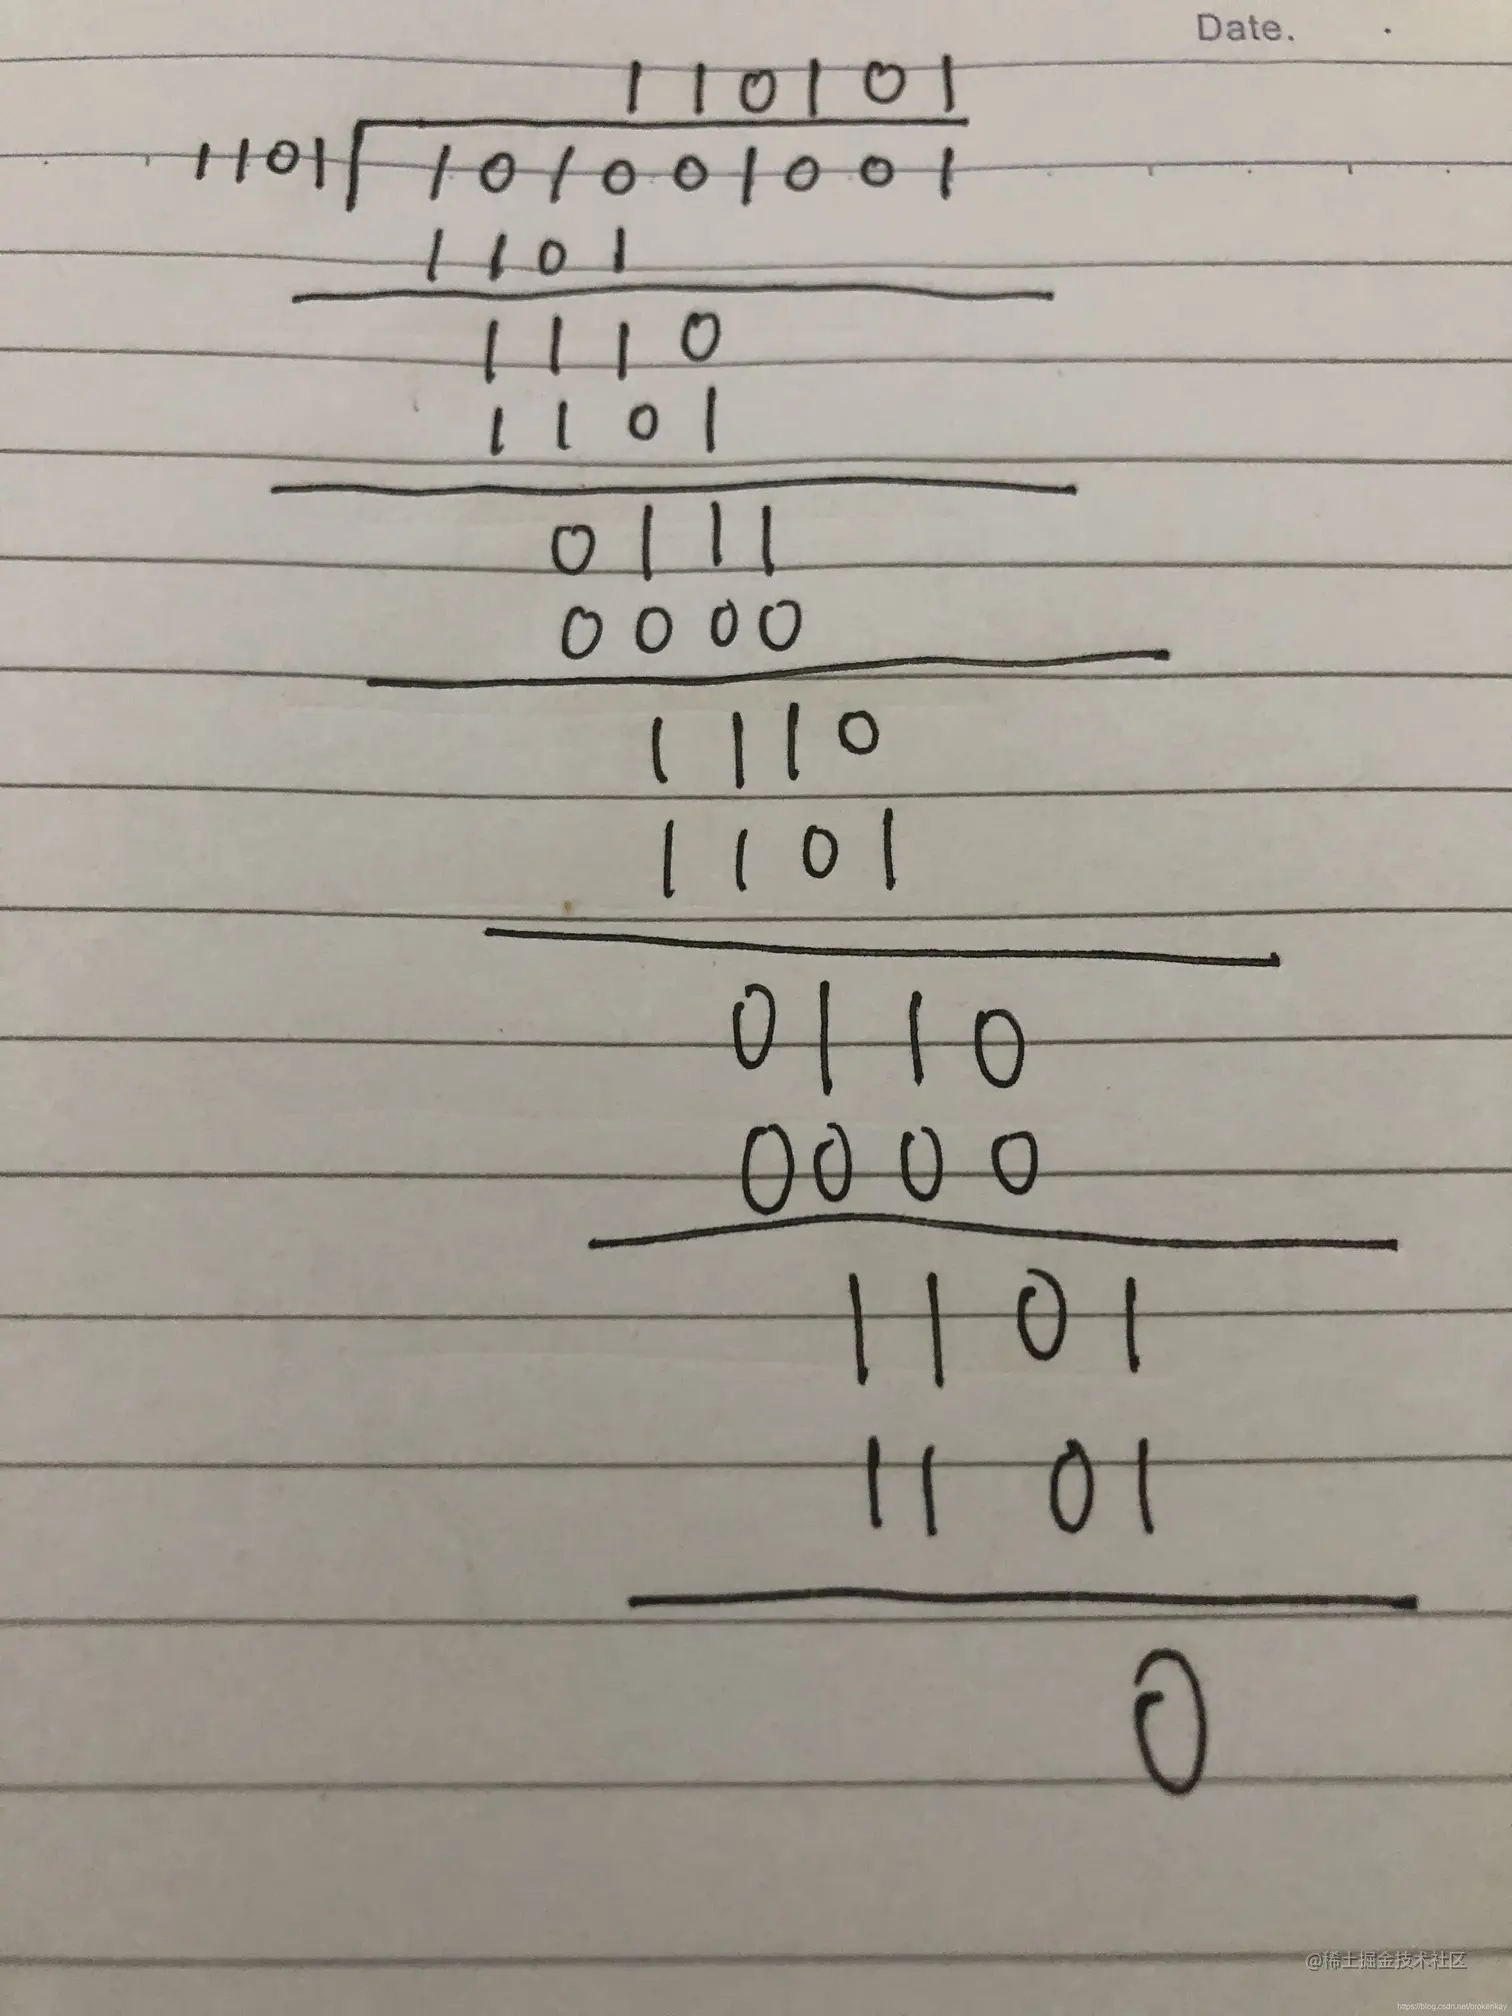 Date.
110101
1101 101001001
1101
1110
1101
0111
0000
1110
1101
0110
0000
1101
1101
0
@稀土掘金技术社区
https://blog.csdn.net/brokenkay